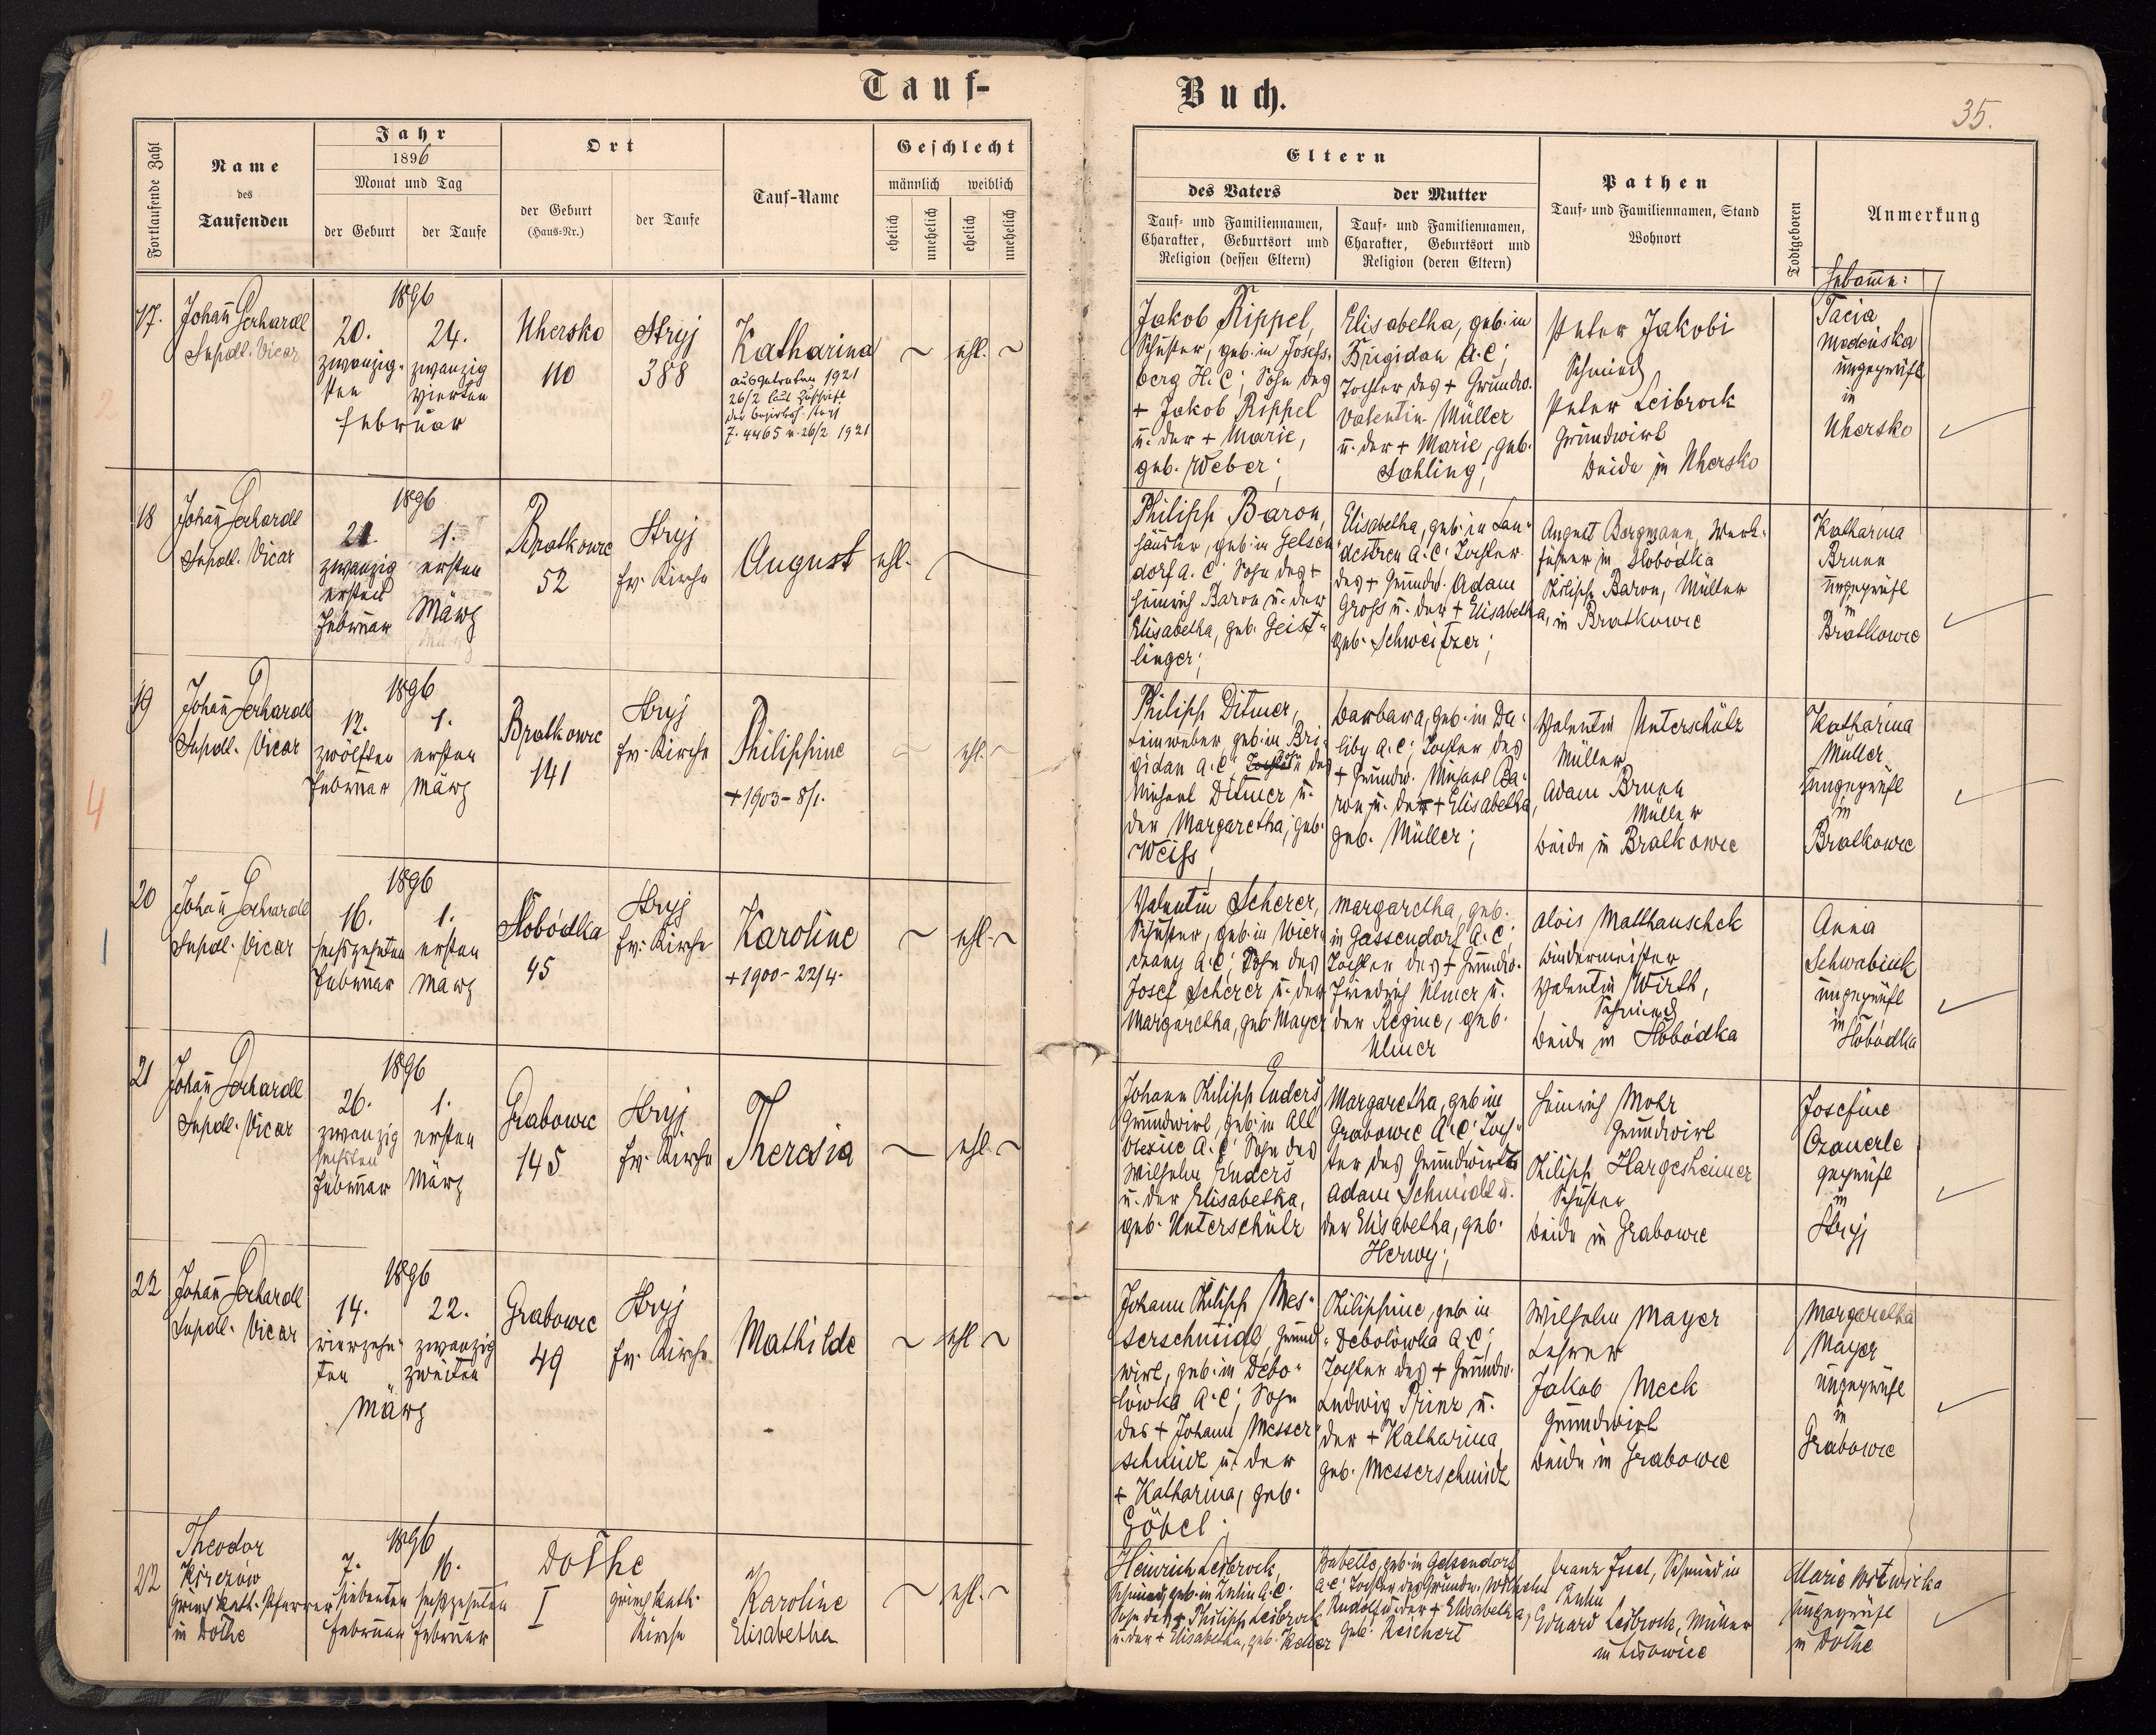 Tauf-
Buch.
35.
Fortlaufende Zahl
Name
des
Taufenden
Jahr
1896
Monat und Tag
der Geburt
der Taufe
Ort
der Geburt
(Haus-Nr.)
der Taufe
Tauf-Name
Geschlecht
männlich
weiblich
ehelich
unehelich
ehelich
unehelich
Eltern
des Vaters
Tauf- und Familiennamen,
Charakter, Geburtsort und
Religion (dessen Eltern)
der Mutter
Tauf- und Familiennamen,
Charakter, Geburtsort und
Religion (deren Eltern)
Pathen
Tauf- und Familiennamen, Stand
Wohnort
Todtgeboren
Anmerkung
Hebamme:
17.
Johañ Gerhardt
Supdt. Vicar
1896
20.
zwanzig-
sten
24.
zwanzig
vierten
Februar
Uhersko
110
Stryj
388
Katharina
ausgetreten 1921
26/2 laut Zuschrift
Z. 4465 v. 26/2 1921
ehl.
Jakob Rippel,
Schuster, geb. in Josefs-
berg H. C; Sohn des
+ Jakob Rippel
u. der + Marie,
geb. Weber;
Elisabetha, geb. in
Brigidau A. C;
Tochter des + Grundw.
Valentin Müller
u. der + Marie, geb.
Sohling;
Peter Jakobi
Schmied
Peter Leibrock
Grundwirt
beide in Uhersko
Tacia
ungeprüft
in
Uhersko
18
Johañ Gerhardt
Supdt. Vicar
1896
21.
zwanzig
ersten
Februar
1.
ersten
März
Bratkowce
52
Stryj
ev. Kirche
August
ehl.
Philipp Baron,
Häusler, geb. in Gelsen-
dorf A. C. Sohn des +
Heinrich Baron u. der
Elisabetha, geb. Geist-
linger;
Elisabetha, geb. in Lan-
destreu A. C. Tochter
des + Grundw. Adam
Gross u. der + Elisabetha,
geb. Schweitzer;
August Bergmann, Werk-
führer in Słobódka
Philipp Baron, Müller
in Bratkowce
Katharina
Brunn
ungeprüft
in
Bratkowce
19
Johañ Gerhardt
Supdt. Vicar
1896
12.
zwölften
Februar
1.
ersten
März
Bratkowce
141
Stryj
ev. Kirche
Philippine
+ 1903 - 8/1.
ehl.
Philipp Ditmer,
Leinweber, geb. in Bri-
gidau A. C. des
Michael Ditmer u.
der Margaretha, geb.
Weiss;
Barbara, geb. in Du-
liby A. C; Tochter des
+ Grundw. Michael Ba-
ron u. der + Elisabetha,
geb. Müller;
Valentin Unterschütz
Müller
Adam Brunn
Müller
beide in Bratkowce
Katharina
Müller
ungeprüft
in
Bratkowce
4
20
Johañ Gerhardt
Supdt. Vicar
1896
16.
sechszehnten
Februar
1.
ersten
März
Słobódka
45
Stryj
ev. Kirche
Karoline
+ 1900 - 22/4.
ehl.
Valentin Scherer,
Schuster, geb. in Wier-
czany A. C; Sohn des
Josef Scherer u. der
Margaretha, geb. Mayer
Margaretha, geb.
in Gassendorf A. C;
Tochter des + Grundw.
Friedrich Ulmer u.
der Regine, geb.
Ulmer
Alois Matthauschek
Bindermeister
Valentin Wirth,
Schmied
beide in Słobódka
Anna
Schwabiuk
ungeprüft
in Słobódka
21
Johañ Gerhardt
Supdt. Vicar
1896
26.
zwanzig
sechsten
Februar
1.
ersten
März
Grabowce
145
Stryj
ev. Kirche
Theresia
ehl.
Johann Philipp Enders
Grundwirt, geb. in Alt
Oleksice A. C. Sohn des
Wilhelm Enders
u. der Elisabetha,
geb. Unterschütz
Margaretha, geb. in
Grabowce A. C; Toch-
ter des Grundwirts
Adam Schmidt u.
der Elisabetha, geb.
Herwy;
Heinrich Mohr
Grundwirt
Philipp Hargesheimer
Schuster
beide in Grabowce
Josefine
Czauerle
geprüft
in
Stryj
22
Johañ Gerhardt
Supdt. Vicar
1896
14.
vierzehn-
ten
22.
zwanzig
zweiten
März
Grabowce
49
Stryj
ev. Kirche
Mathilde
ehl.
Johann Philipp Mes-
serschmidt, Grund-
wirt, geb. in Debo-
lówka A. C; Sohn
des + Johann Messer-
schmidt u. der
+ Katharina, geb.
Göbel;
Philippine, geb. in
Debolówka A. C;
Tochter des + Grundw.
Ludwig Prinz u.
der + Katharina,
geb. Messerschmidt
Wilhelm Mayer
Lehrer
Jakob Meck
Grundwirt
beide in Grabowce
Margaretha
Mayer
ungeprüft
in
Grabowce
22
Theodor
griech. kath. Pfarrer
in Dołhe
1896
7.
siebenten
Februar
16.
sechszehnten
Februar
Dołhe
I
griech. kath.
Kirche
Karoline
Elisabetha
ehl.
Heinrich Leibrock,
Schmied, geb. in Zulin A. C.
Sohn des + Philipp Leibrock
u. der + Elisabetha, geb. Keller
Babette, geb. in Gelsendorf
A. C. Tochter des Grundw. Wilhelm
Rudolf u. der + Elisabetha,
geb. Reichert
Franz Just, Schmied in
Zulin
Eduard Leibrock, Müller
in Lisowice
Marie
ungeprüft
in Dołhe